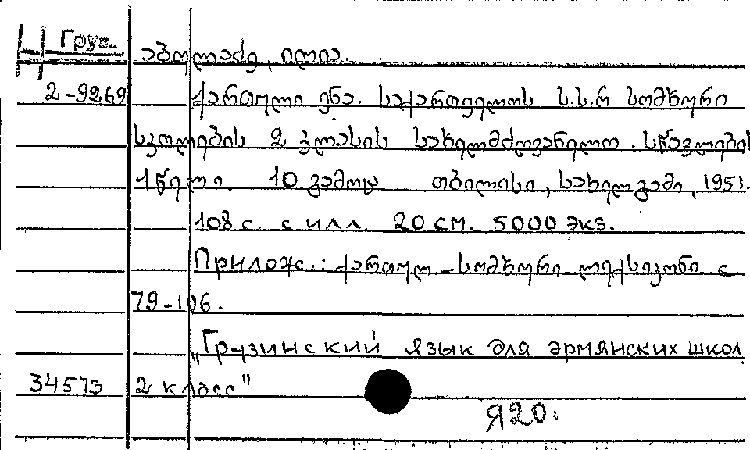 Груз.
აბულაძე, ილია.
2-9269 ქართული ენა. საქართველოს ს.ს.რ სომხური
სკოლების 2 კლასის სახელმძღვანელო. სწავლების
1 წელი. 10 გამოც. თბილისი, სახელგამი, 1951.
108 с. с илл. 20 см. 5000 экз.
Прилож.: ქართულ-სომხური ლექსიკონი с
79-106.
„Грузинский язык для армянских школ
34573 2 класс"
Я20.